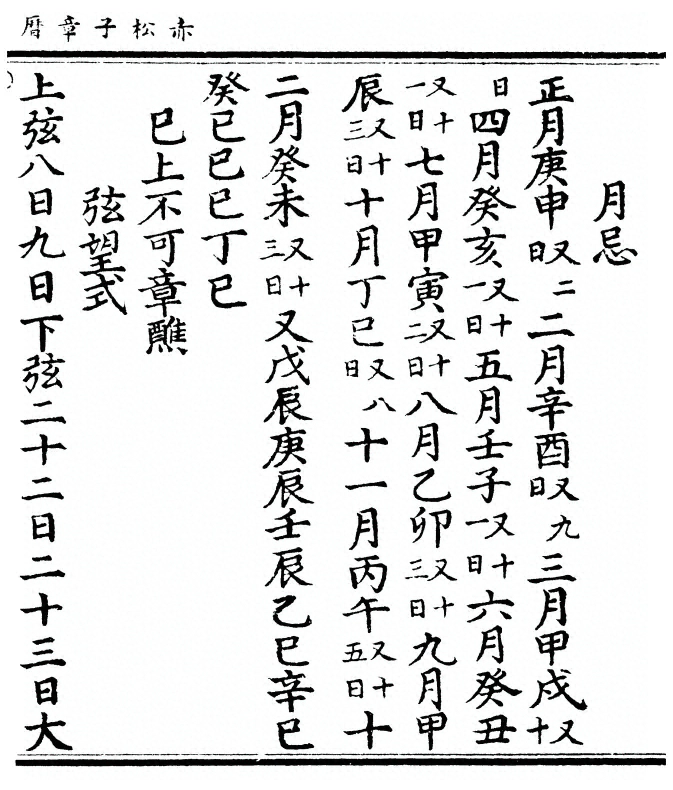 赤松子章曆
月忌
正月庚申又二日二月辛酉又九日三月甲戌又十
日四月癸亥又十一日五月壬子又十一日六月癸丑
又十一日七月甲寅又十二日八月乙卯又十三日九月甲
辰又十三日十月丁巳又八日十一月丙午又十五日十
二月癸未又十三日又戊辰庚辰壬辰乙巳辛巳
癸巳巳巳丁巳
巳上不可章醮
弦望式
上弦八日九日下弦二十二日二十三日大